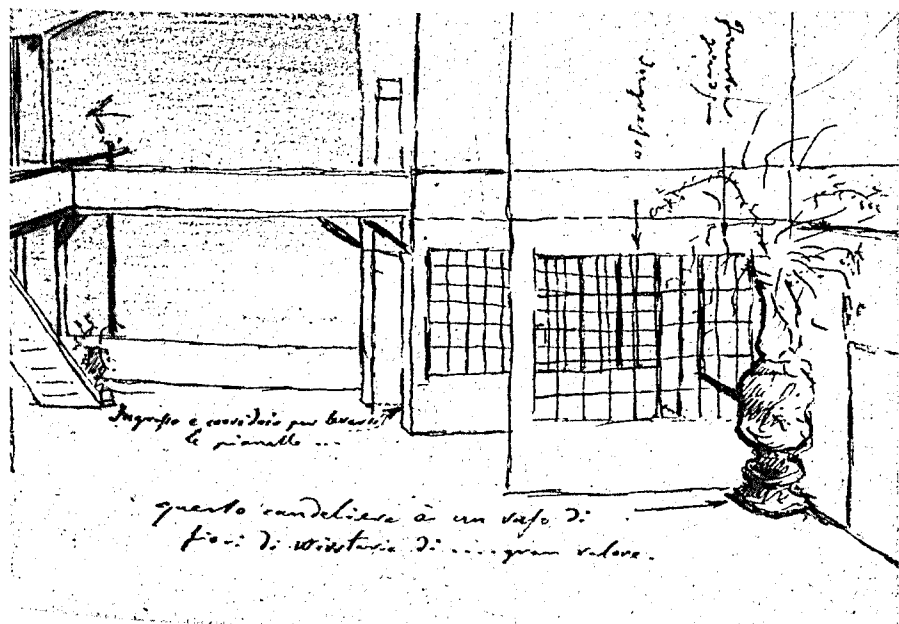 Ingresso e corridoio per levarsi
le pianelle ...
questo candeliere è un vaso di
fiori di wistaria di .... gran valore.